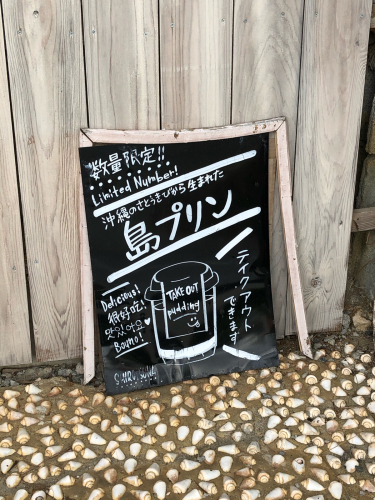 数量限定!!
Limited Number!
沖縄のさとうきびから生まれた
島プリン
TAKE OUT
pudding
Delicious!
很好吃!
맛있어요
テイクアウト
できます